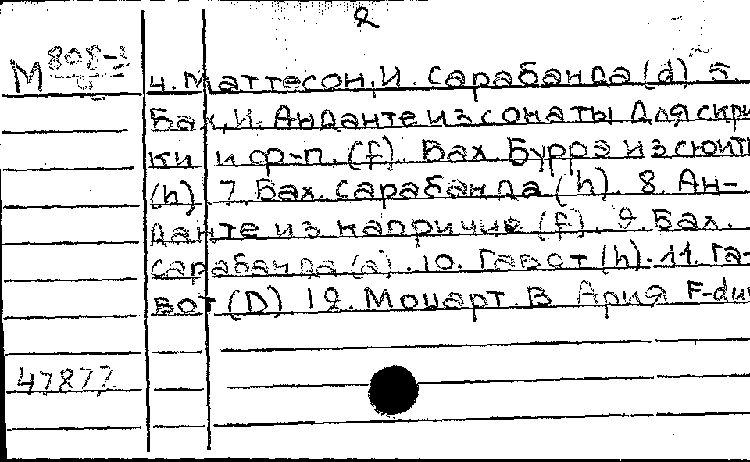 2
М 808-3
4. Маттесон, И. Сарабанда (d) 5.
Бах, И. Анданте из сонаты для скрип
ки и ф-п. (f). Бах. Буррэ из сюиты
(h) 7. Бах. Сарабанда (h). 8. Ан-
данте из каприччио (f). 9. Бах.
Сарабанда (a). 10. Гавот (h). 11. Га-
вот (D) 12. Моцарт. В Ария F-dur
47877